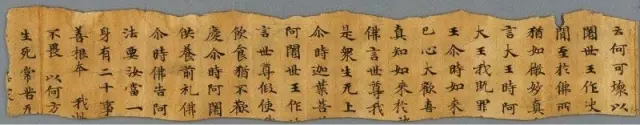 云何可壞以
闍世王作
聞至於佛所
猶如微妙真
言大王時阿
大王我既罪
王尒時如来
已心大歡喜
真知如来於
佛言世尊我
是衆生死上
尒時迦葉菩
言世尊假使
阿闍世王作
飲食猶不歡
慶尒時阿闍
供養前礼佛
尒時佛告阿
法要汝當一
身有二十事
善根本 我
不畏 以何方
生死常苦无